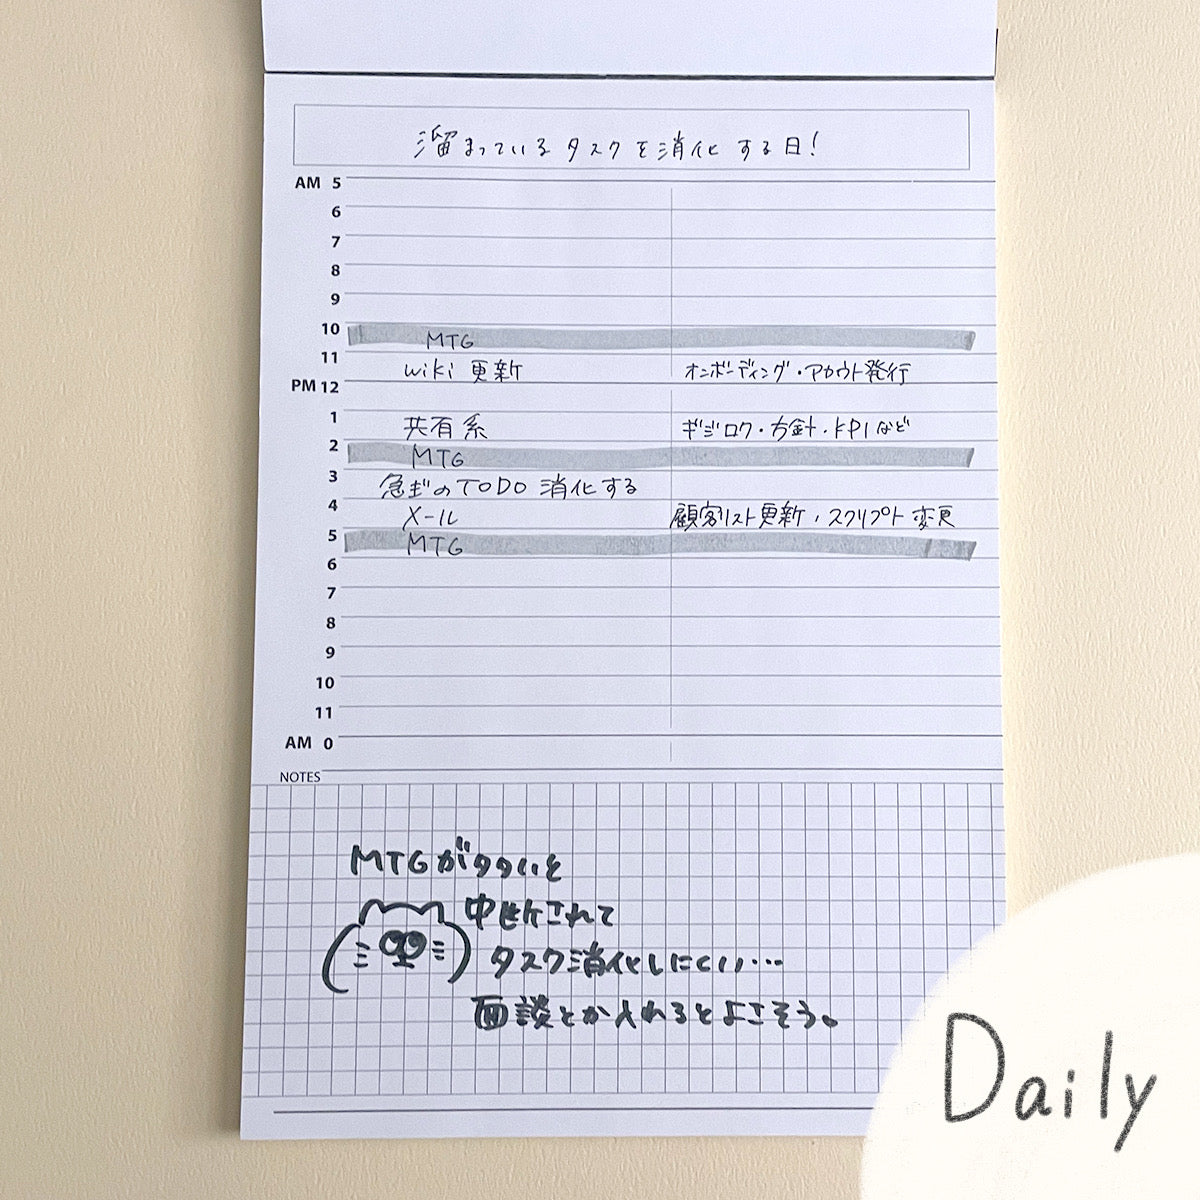 溜まっているタスクを消化する日！
AM 5
6
7
8
9
10 MTG
11 wiki 更新 オンボーディング・アカウト発行
PM 12
1 共有系 ギジロク・方針・KPIなど
2 MTG
3 急ぎのTODO 消化する
4 メール 顧客リスト更新・スクリプト変更
5 MTG
6
7
8
9
10
11
AM 0
NOTES
MTGが多いと
中断されて
タスク消化しにくい…
面談とか入れるとよこそう。
Daily